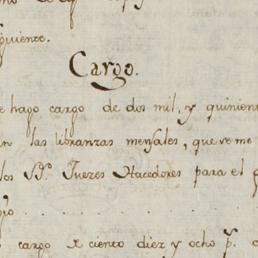 siguiente.
Cargo.
e hago cargo de dos mil, y quinien
n las libranzas mensales, que se me
los SS.res Juezes Hacedores para el g
cargo x ciento diez y ocho p.s